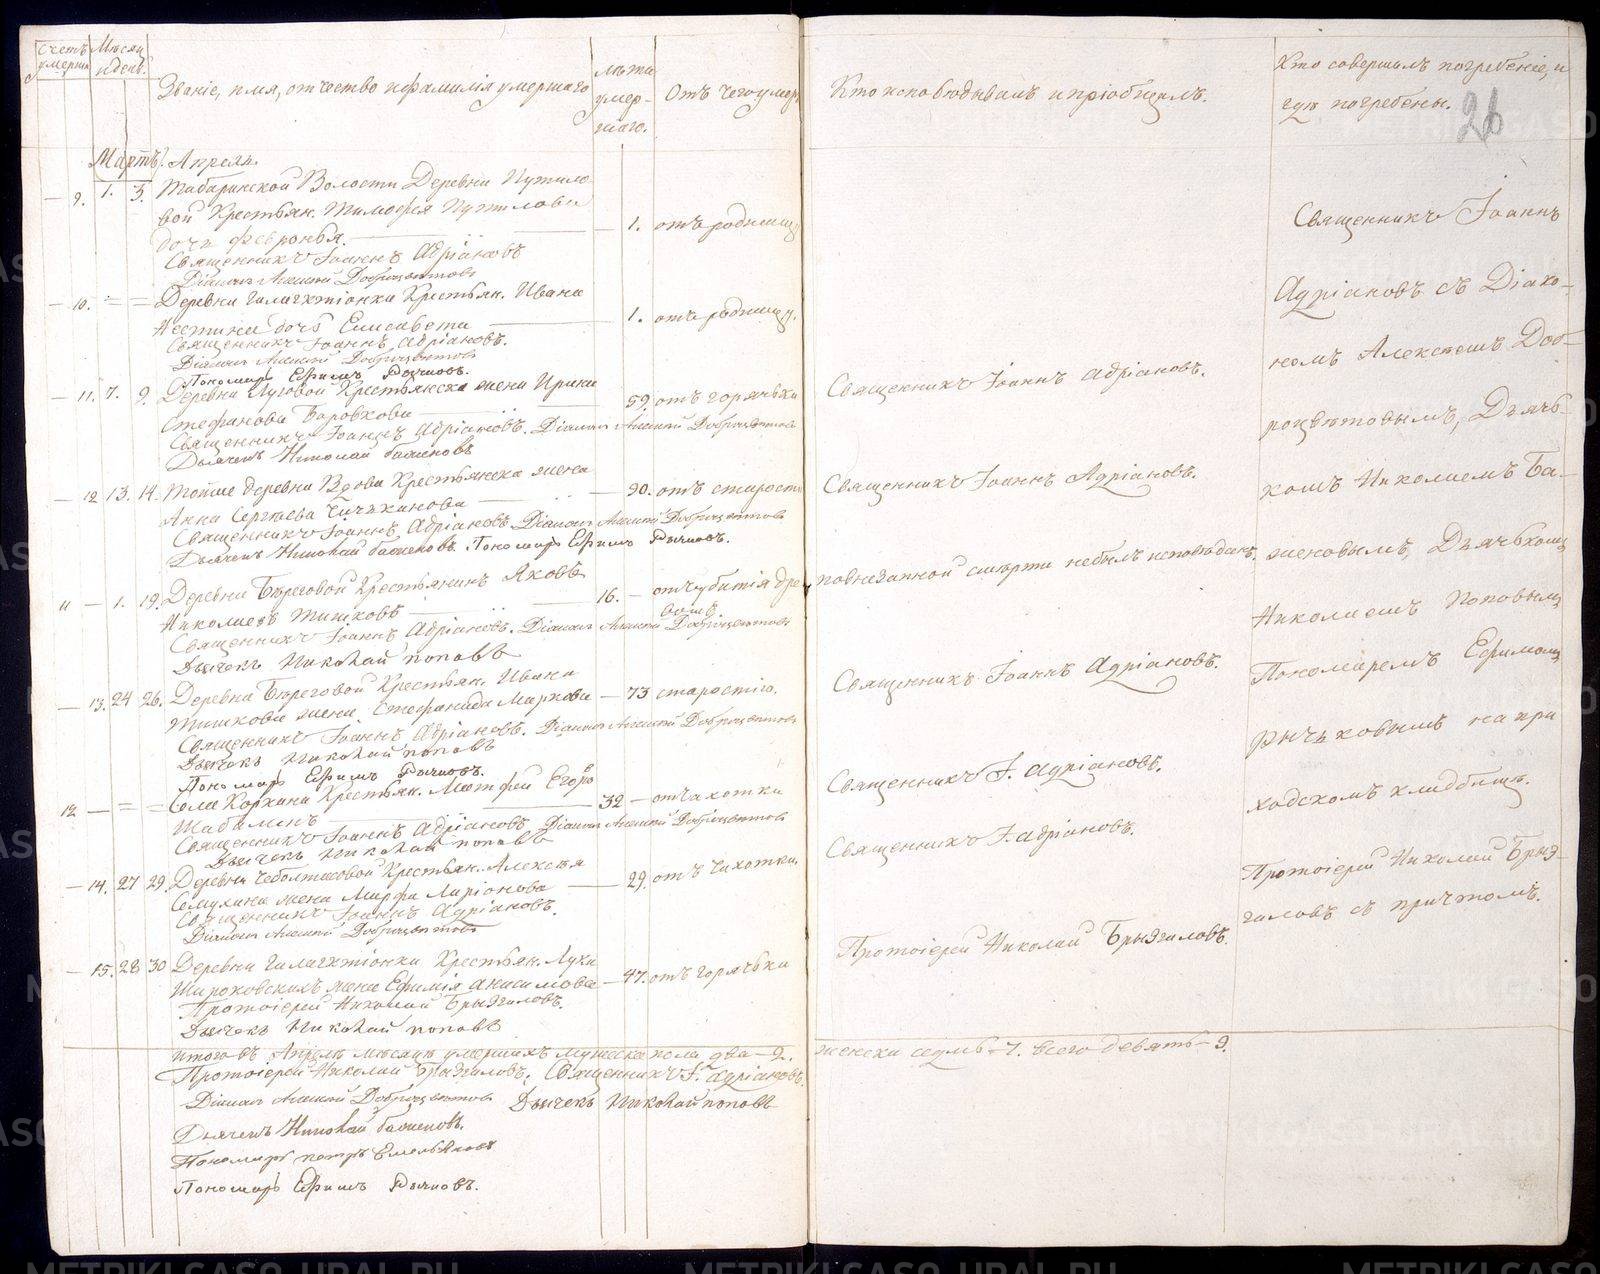 Счетъ умерши
Мѣсяц и день.
Званіе, имя, отчество и фамилія умершаго
лѣта умер-
шаго.
Отъ чего умер
Кто исповѣдывалъ и пріобщалъ.
Кто совершалъ погребеніе, и
гдѣ погребены.
26
Мартъ. Апрель.
9. 1. 3. Табаринской Волости Деревни Путило-
вой Крестьян. Тимофея Путилова
дочь Февронья. 1. отъ родимцу
Священникъ Іоаннъ Адріановъ
Діаконъ Алексѣй Доброцвѣтовъ
10. = = Деревни Крестьян. Ивана
дочь Елисавета 1. отъ родимцу.
Священникъ Іоаннъ Адріановъ.
Діаконъ Алексѣй Доброцвѣтовъ
Пономарь Ефимъ Рычковъ.
11. 7. 9. Деревни Луговой Крестьянска жена Ирина
Стефанова Боровкова 59. отъ горячьки
Священникъ Іоаннъ Адріановъ. Діаконъ Алексѣй Доброцвѣтовъ
Дьячекъ Николай Баженовъ
Священникъ Іоаннъ Адріановъ.
12 13. 14. Тойже деревни Вдова Крестьянска жена
Анна Сергѣева 90. отъ старости
Священникъ Іоаннъ Адріановъ Діаконъ Алексѣй Доброцвѣтовъ
Дьячекъ Николай Баженовъ. Пономарь Ефимъ Рычковъ.
Священникъ Іоаннъ Адріановъ.
11 — 1. 19. Деревни Береговой Крестьянинъ Яковъ
Николаевъ Тишковъ 16. отъ убитія дре
вомъ.
Священникъ Іоаннъ Адріановъ. Діаконъ Алексѣй Доброцвѣтовъ
Дьячекъ Николай Поповъ
по внезапной смерти небылъ исповѣданъ.
13. 24 26. Деревни Береговой Крестьян. Ивана
Тишкова жена Стефанида Маркова 73 старостію.
Священникъ Іоаннъ Адріановъ. Діаконъ Алексѣй Доброцвѣтовъ
Дьячекъ Николай Поповъ
Пономарь Ефимъ Рычковъ.
Священникъ Іоаннъ Адріановъ.
12 — = = Села Крестьян. Матфей Егоро
32 отъ чахотки
Священникъ Іоаннъ Адріановъ Діаконъ Алексѣй Доброцвѣтовъ
Дьячекъ Николай Поповъ
Священникъ І. Адріановъ.
14. 27 29. Деревни Крестьян. Алексѣя
Семухина жена Марфа Ларіонова 29. отъ чахотки
Священникъ Іоаннъ Адріановъ.
Діаконъ Алексѣй Доброцвѣтовъ
Священникъ І. Адріановъ.
15. 28 30 Деревни Крестьян. Лука
Широковскихъ жена Ефимія Анисимова 47. отъ горячьки
Протоіерей Николай Брызгаловъ.
Дьячекъ Николай Поповъ
Протоіерей Николай Брызгаловъ.
Священникъ Іоаннъ
Адріановъ съ Діако-
номъ Алексѣемъ Доб-
роцвѣтовымъ, Дьячь-
комъ Николаемъ Ба-
женовымъ, Дьячькомъ
Николаемъ Поповымъ
Пономаремъ Ефимомъ
Рычьковымъ на при
ходскомъ кладбищѣ.
Протоіерей Николай Брыз-
галовъ съ причтомъ.
итого въ Апрелѣ мѣсяцѣ умершихъ мужеска пола два — 2. женска седмь — 7. Всего девять — 9.
Протоіерей Николай Брызгаловъ. Священникъ І. Адріановъ.
Діаконъ Алексѣй Доброцвѣтовъ Дьячекъ Николай Поповъ
Дьячекъ Николай Баженовъ.
Пономарь Петръ Емельяновъ
Пономарь Ефимъ Рычковъ.
METRIKI.GASO-URAL.RU